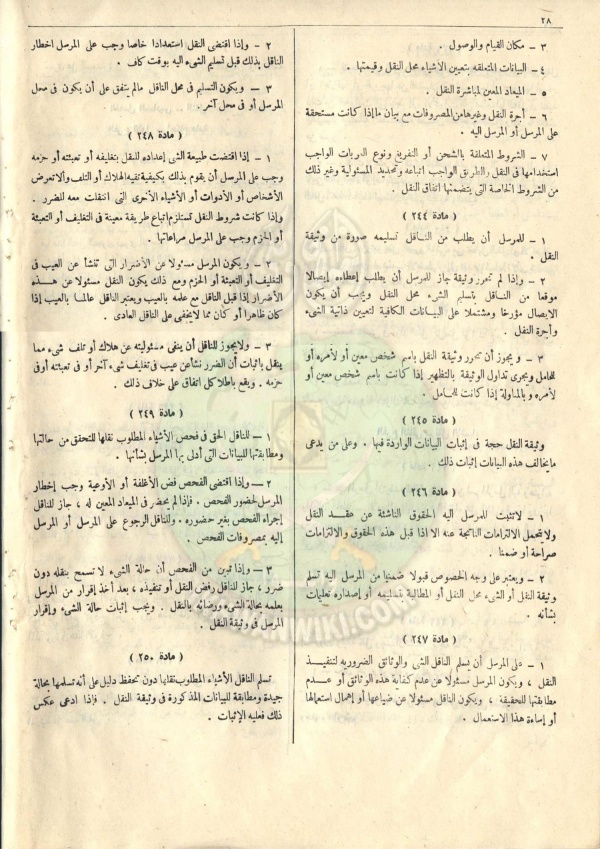 ٢٨
٣ - مكان القيام والوصول .
٤ - البيانات المتعلقه بتعيين الاشياء محل النقل وقيمتها .
٥ - الميعاد المعين لمباشرة النقل .
٦ - أجرة النقل وغيرها من المصروفات مع بيان ما إذا كانت مستحقة
على المرسل أو المرسل اليه .
٧ - الشروط المتعلقة بالشحن أو التفريغ ونوع العربات الواجب
استخدامها فى النقل والطريق الواجب اتباعه وتحديد المسئولية وغير ذلك
من الشروط الخاصة التى يتضمنها اتفاق النقل .
( مادة ٢٤٤ )
١ - للمرسل أن يطلب من الناقل تسليمه صورة من وثيقة
النقل .
٢ - وإذا لم تحرر وثيقة جاز للمرسل أن يطلب إعطاءه إيصالا
موقعا من الناقل بتسلم الشىء محل النقل ويجب أن يكون
الايصال مؤرخا ومشتملا على البيانات الكافية لتعيين ذاتية الشىء
وأجرة النقل .
٣ - و يجوز أن تحرر وثيقة النقل باسم شخص معين أو لأمره أو
للحامل ويجرى تداول الوثيقة بالتظهير إذا كانت باسم شخص معين أو
لأمره و بالمناولة إذا كانت للحامل .
( مادة ٢٤٥ )
وثيقة النقل حجة فى إثبات البيانات الواردة فيها . وعلى من يدعى
مايخالف هذه البيانات إثبات ذلك .
( مادة ٢٤٦ )
١ - لاتثبت للمرسل اليه الحقوق الناشئة عن عقد النقل
ولايتحمل الالتزامات الناتجة عنه الا اذا قبل هذه الحقوق والالتزامات
صراحة أو ضمنا .
٢ - ويعتبر على وجه الخصوص قبولا ضمنيا من المرسل اليه تسلم
وثيقة النقل أو الشىء محل النقل أو المطالبة بتسليمه أو إصداره تعليمات
بشأنه .
( مادة ٢٤٧ )
١ - على المرسل أن يسلم الناقل الشى والوثائق الضروريه لتنفيذ
النقل ، ويكون المرسل مسئولا عن عدم كفاية هذه الوثائق أو عدم
مطابقتها للحقيقة ، ويكون الناقل مسئولا عن ضياعها أو إهمال استعمالها
أو إساءة هذا الاستعمال .
٢ - وإذا اقتضى النقل استعدادا خاصا وجب على المرسل اخطار
الناقل بذلك قبل تسليم الشىء اليه بوقت كاف .
٣ - ويكون التسليم فى محل الناقل مالم يتفق على أن يكون فى محل
المرسل أو فى محل آخر .
( مادة ٢٤٨ )
١ - إذا اقتضت طبيعة الشى إعداده للنقل بتغليفه أو تعبئته أو حزمه
وجب على المرسل أن يقوم بذلك بكيفية تقيه الهلاك أو التلف ولا تعرض
الأشخاص أو الأدوات أو الأشياء الأخرى التى انتقلت معه للضرر .
وإذا كانت شروط النقل تستلزم اتباع طريقة معينة فى التغليف أو التعبئة
أو الحزم وجب على المرسل مراعاتها .
٢ - ويكون المرسل مسئولا عن الأضرار التى تنشأ عن العيب فى
التغليف أو التعبئة أو الحزم ومع ذلك يكون الناقل مسئولا عن هذه
الأضرار إذا قبل الناقل مع علمه بالعيب ويعتبر الناقل عالما بالعيب إذا
كان ظاهرا أو كان مما لايخفى على الناقل العادى .
٣ - ولايجوز للناقل أن ينفى مسئوليته عن هلاك أو تلف شىء مما
ينقل باثبات أن الضرر نشأ عن عيب فى تغليف شىء آخر أو فى تعبئته أو فى
حزمه . ويقع باطلا كل اتفاق على خلاف ذلك .
( مادة ٢٤٩ )
١ - للناقل الحق فى فحص الأشياء المطلوب نقلها للتحقق من حالتها
ومطابقتها للبيانات التى أدلى بها المرسل بشأنها .
٢ - وإذا اقتضى الفحص فض الأغلفة أو الأوعية وجب إخطار
المرسل لحضور الفحص . فإذا لم يحضر فى الميعاد المعين له ، جاز للناقل
إجراء الفحص بغير حضوره . وللناقل الرجوع على المرسل أو المرسل
إليه بمصروفات الفحص .
٣ - وإذا تبين من الفحص أن حالة الشىء لا تسمح بنقله دون
ضرر ، جاز للناقل رفض النقل أو تنفيذه ، بعد أخذ إقرار من المرسل
بعلمه بحالة الشىء ورضائه بالنقل . ويجب إثبات حالة الشىء وإقرار
المرسل فى وثيقة النقل .
( مادة ٢٥٠ )
تسلم الناقل الأشياء المطلوب نقلها دون تحفظ دليل على أنه تسلمها بحالة
جيدة ومطابقة للبيانات المذكورة فى وثيقة النقل . فإذا ادعى عكس
ذلك فعليه الإثبات .